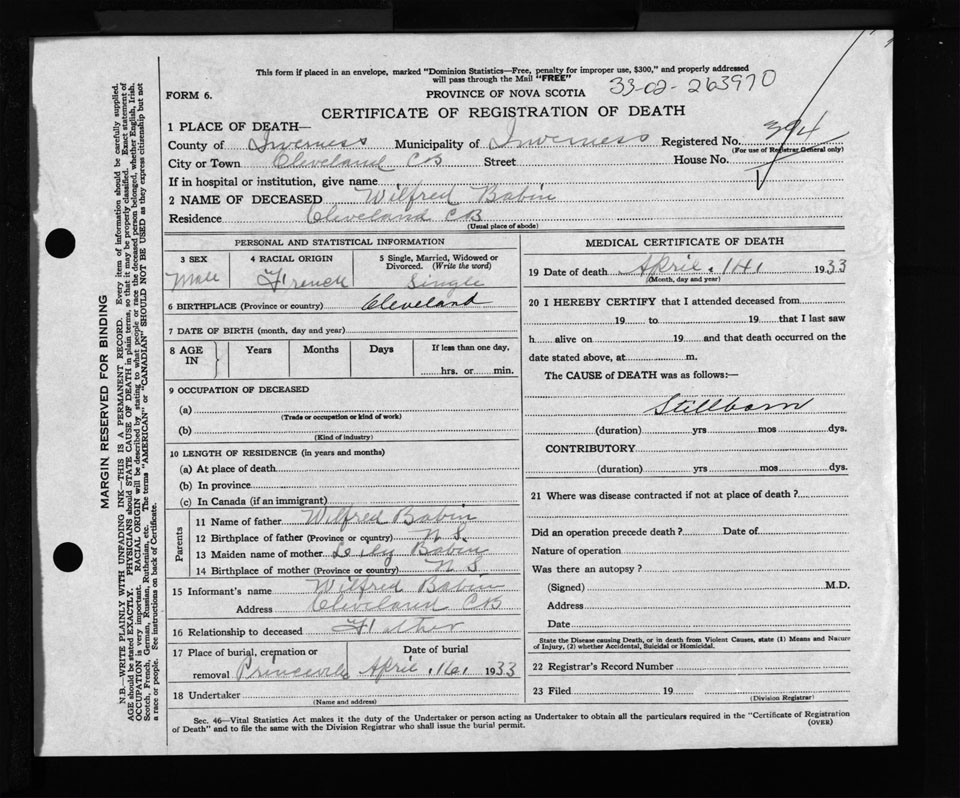 This form if placed in an envelope, marked "Dominion Statistics—Free, penalty for improper use, $300," and properly addressed
will pass through the Mail "FREE"
33-02-263970
FORM 6.
PROVINCE OF NOVA SCOTIA
CERTIFICATE OF REGISTRATION OF DEATH
1 PLACE OF DEATH—
County of Inverness Municipality of Inverness Registered No. 394
(For use of Registrar General only)
City or Town Cleveland CB Street House No.
If in hospital or institution, give name
2 NAME OF DECEASED Wilfred Babin
Residence Cleveland CB
(Usual place of abode)
PERSONAL AND STATISTICAL INFORMATION
3 SEX 4 RACIAL ORIGIN 5 Single, Married, Widowed or
Divorced. (Write the word)
Male French Single
6 BIRTHPLACE (Province or country) Cleveland
7 DATE OF BIRTH (month, day and year)
8 AGE IN Years Months Days If less than one day,
hrs. or min.
9 OCCUPATION OF DECEASED
(a)
(Trade or occupation or kind of work)
(b)
(Kind of industry)
10 LENGTH OF RESIDENCE (in years and months)
(a) At place of death
(b) In province
(c) In Canada (if an immigrant)
Parents
11 Name of father Wilfred Babin
12 Birthplace of father (Province or country) N. S.
13 Maiden name of mother Babin
14 Birthplace of mother (Province or country) N S
15 Informant's name Wilfred Babin
Address Cleveland CB
16 Relationship to deceased Father
17 Place of burial, cremation or Date of burial
removal Princeville April 16 1933
18 Undertaker
(Name and address)
MEDICAL CERTIFICATE OF DEATH
19 Date of death April 14 1933
(Month, day and year)
20 I HEREBY CERTIFY that I attended deceased from
19 to 19 that I last saw
h alive on 19 and that death occurred on the
date stated above, at m.
The CAUSE of DEATH was as follows:—
Stillborn
(duration) yrs mos dys.
CONTRIBUTORY
(duration) yrs mos dys.
21 Where was disease contracted if not at place of death?
Did an operation precede death? Date of
Nature of operation
Was there an autopsy?
(Signed) M.D.
Address
Date
State the Disease causing Death, or in death from Violent Causes, state (1) Means and Nature
of Injury, (2) whether Accidental, Suicidal or Homicidal.
22 Registrar's Record Number
23 Filed 19
(Division Registrar)
Sec. 46—Vital Statistics Act makes it the duty of the Undertaker or person acting as Undertaker to obtain all the particulars required in the "Certificate of Registration
of Death" and to file the same with the Division Registrar who shall issue the burial permit. (OVER)
MARGIN RESERVED FOR BINDING
N.B.—WRITE PLAINLY WITH UNFADING INK—THIS IS A PERMANENT RECORD. Every item of information should be carefully supplied.
AGE should be stated EXACTLY. PHYSICIANS should STATE CAUSE OF DEATH in plain terms, so that it may be properly classified. Exact statement of
OCCUPATION is very important. RACIAL ORIGIN will be described by stating to what people or race the deceased person belonged, whether English, Irish,
Scotch, French, German, Russian, Ruthenian, etc. The terms "AMERICAN" or "CANADIAN" SHOULD NOT BE USED as they express citizenship but not
a race or people. See instructions on back of Certificate.